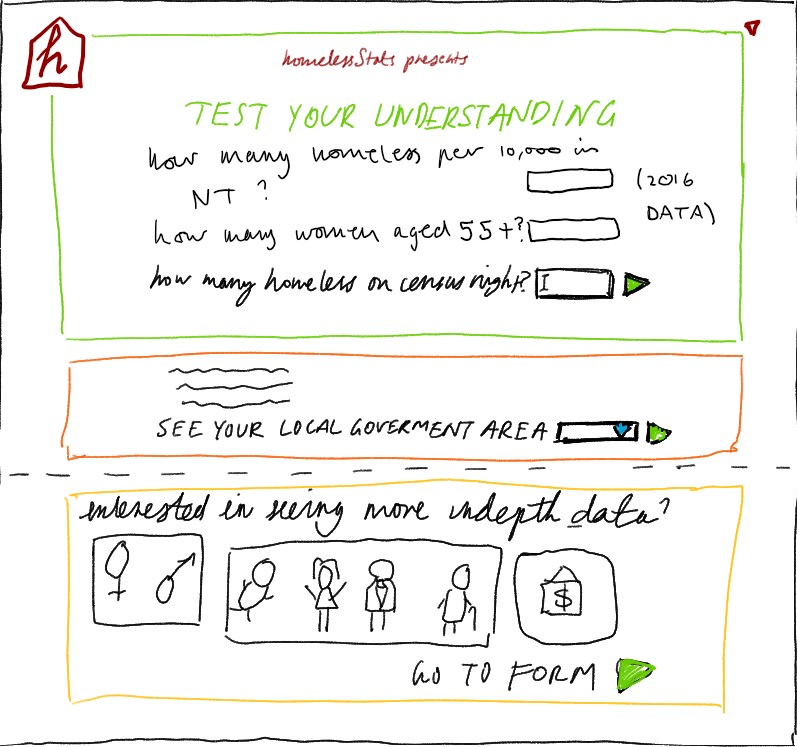 h
homelessStats presents
TEST YOUR UNDERSTANDING
how many homeless per 10,000 in
NT ?
(2016
DATA)
how many women aged 55+?
how many homeless on census night?
I
SEE YOUR LOCAL GOVERMENT AREA
interested in seeing more indepth data?
$
GO TO FORM